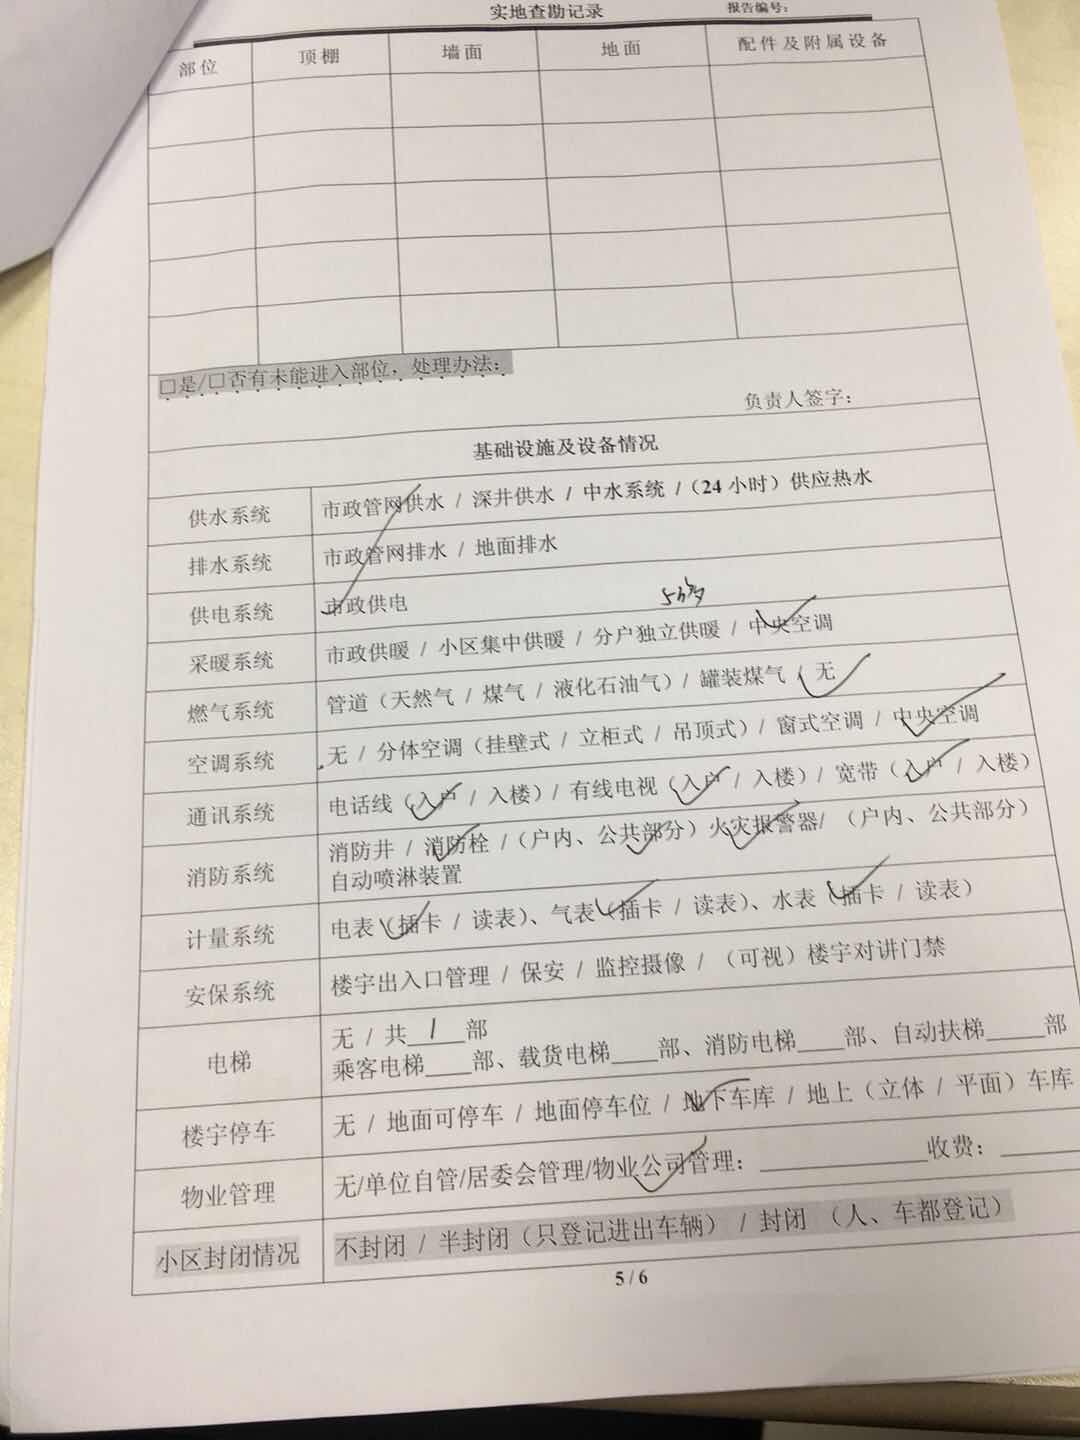 实地查勘记录 报告编号：
部位 顶棚 墙面 地面 配件及附属设备
□是/□否有未能进入部位，处理办法：
负责人签字：
基础设施及设备情况
供水系统 市政管网供水 / 深井供水 / 中水系统 /（24 小时）供应热水
排水系统 市政管网排水 / 地面排水
供电系统 市政供电
采暖系统 市政供暖 / 小区集中供暖 / 分户独立供暖 / 中央空调
燃气系统 管道（天然气 / 煤气 / 液化石油气）/ 罐装煤气 / 无
空调系统 无 / 分体空调（挂壁式 / 立柜式 / 吊顶式）/ 窗式空调 / 中央空调
通讯系统 电话线（入户 / 入楼）/ 有线电视（入户 / 入楼）/ 宽带（入户 / 入楼）
消防系统 消防井 / 消防栓 /（户内、公共部分）火灾报警器/ （户内、公共部分）
自动喷淋装置
计量系统 电表（插卡 / 读表）、气表（插卡 / 读表）、水表（插卡 / 读表）
安保系统 楼宇出入口管理 / 保安 / 监控摄像 / （可视）楼宇对讲门禁
电梯 无 / 共 1 部
乘客电梯____部、载货电梯____部、消防电梯____部、自动扶梯____部
楼宇停车 无 / 地面可停车 / 地面停车位 / 地下车库 / 地上（立体 / 平面）车库
物业管理 无/单位自管/居委会管理/物业公司管理：____ 收费：____
小区封闭情况 不封闭 / 半封闭（只登记进出车辆） / 封闭 （人、车都登记）
5 / 6